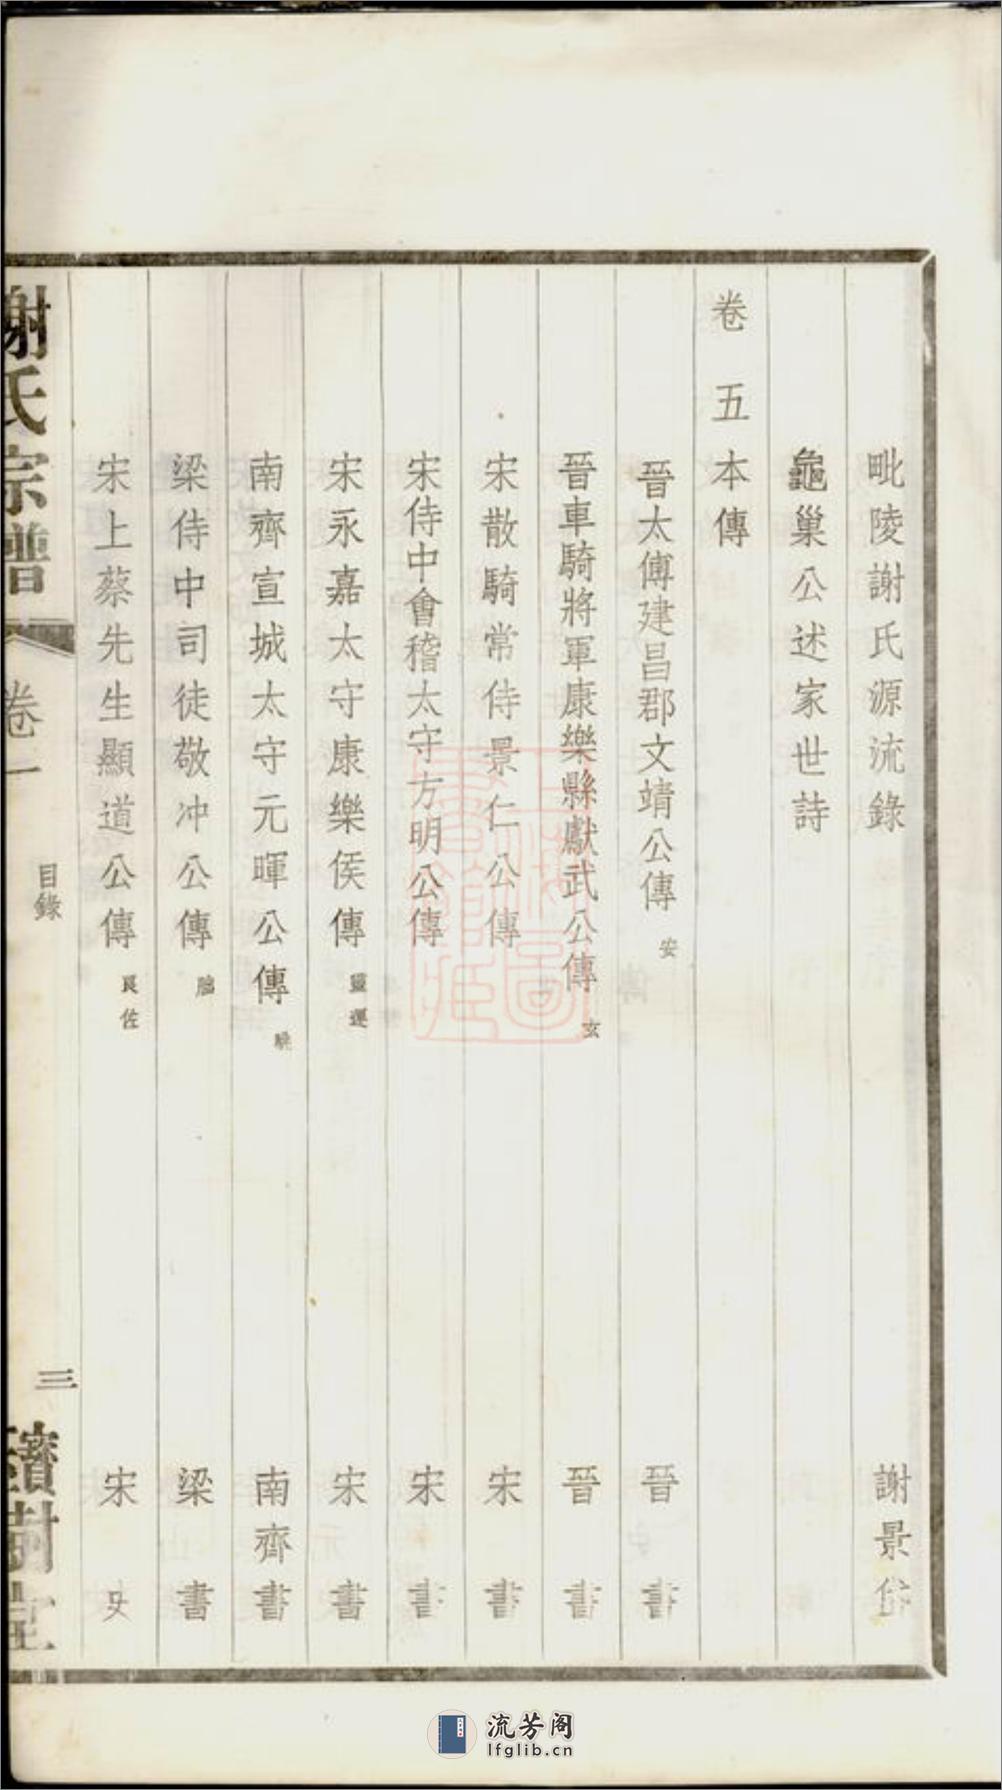 毗陵謝氏源流錄 謝景
龜巢公述家世詩
卷五本傳
晉太傅建昌郡文靖公傳 安 晉書
晉車騎將軍康樂縣獻武公傳 玄 晉書
宋散騎常侍景仁公傳 宋書
宋侍中會稽太守方明公傳 宋書
宋永嘉太守康樂侯傳 靈運 宋書
南齊宣城太守元暉公傳 朓 南齊書
梁侍中司徒敬冲公傳 梁書
宋上蔡先生顯道公傳 良佐 宋史
謝氏宗譜 卷一 目錄 三 寶樹堂
上海圖書館藏
流芳阁
lfglib.cn